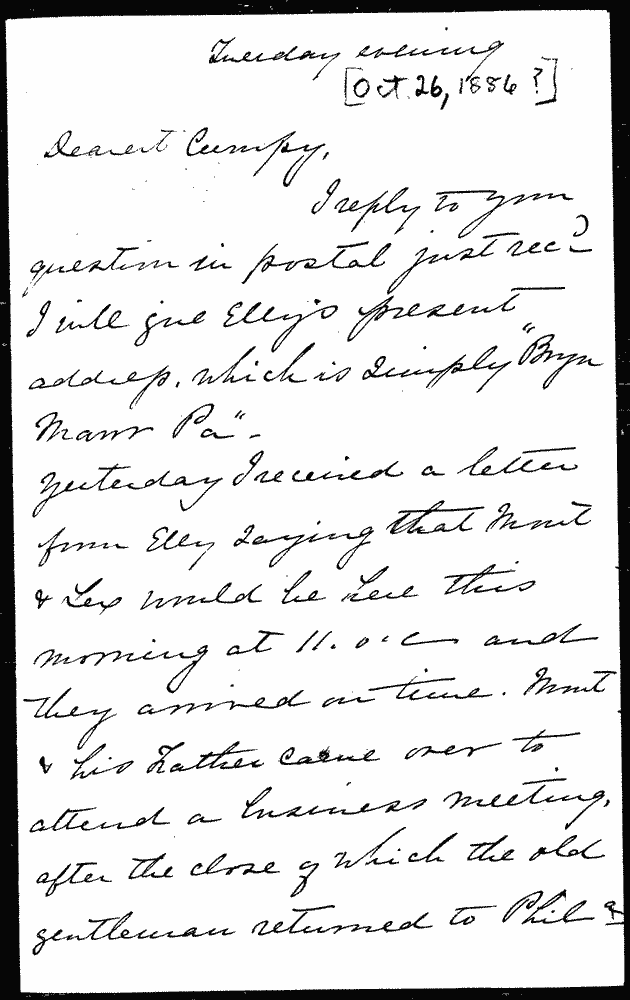 Tuesday evening
[Oct. 26, 1886?]
Dearest Cumpy,
I reply to your
question in postal just rec^d
I will give Elly's present
address, which is simply "Bryn
Mawr Pa".
Yesterday I received a letter
from Elly saying that Mont
& Lex would be here this
morning at 11. o'c and
they arrived on time. Mont
& his Father came over to
attend a business meeting,
after the close of which the old
gentleman returned to Phil^a